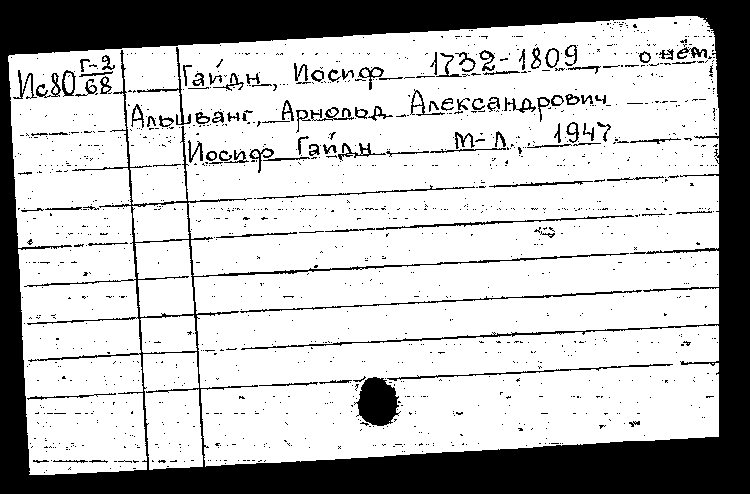 Ис80 Г-2/68 Гайдн, Иосиф 1732-1809, о нем
Альшванг, Арнольд Александрович
Иосиф Гайдн. М-Л, 1947